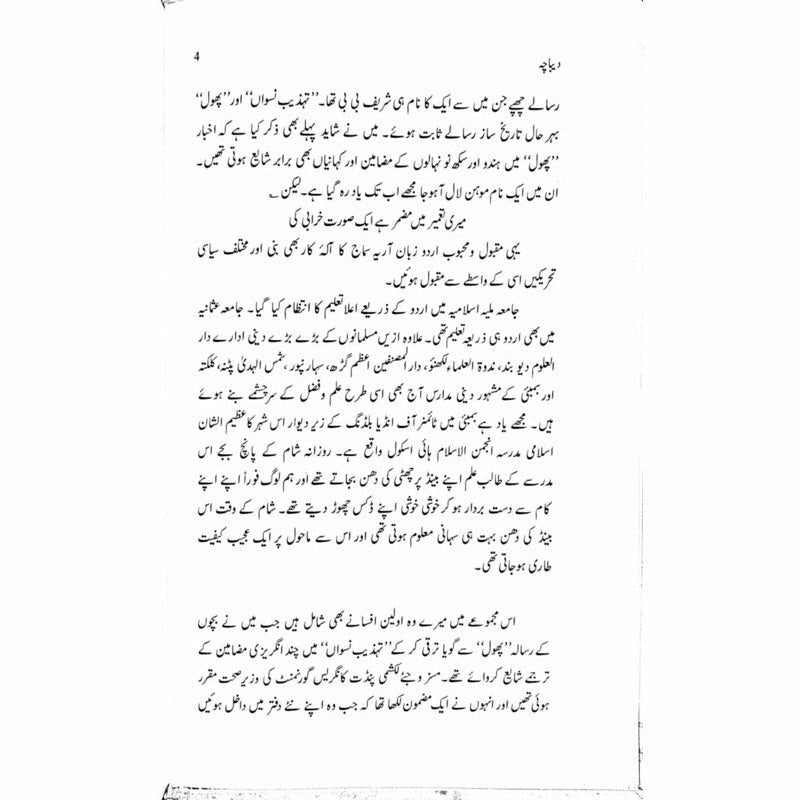 دیباچہ
4
رسالے چھپے جن میں سے ایک کا نام ہی شریف بی بی تھا۔ ''تہذیب نسواں'' اور ''پھول''
بہر حال تاریخ ساز رسالے ثابت ہوئے۔ میں نے شاید پہلے بھی ذکر کیا ہے کہ اخبار
''پھول'' میں ہندو اور سکھ نو نہالوں کے مضامین اور کہانیاں بھی برابر شایع ہوتی تھیں۔
ان میں ایک نام موہن لال آہوجا مجھے اب تک یاد رہ گیا ہے۔ لیکن ؎
میری تعمیر میں مضمر ہے ایک صورت خرابی کی
یہی مقبول و محبوب اردو زبان آریہ سماج کا آلۂ کار بھی بنی اور مختلف سیاسی
تحریکیں اسی کے واسطے سے مقبول ہوئیں۔
جامعہ ملیہ اسلامیہ میں اردو کے ذریعے اعلا تعلیم کا انتظام کیا گیا۔ جامعہ عثمانیہ
میں بھی اردو ہی ذریعہ تعلیم تھی۔ علاوہ ازیں مسلمانوں کے بڑے بڑے دینی ادارے دار
العلوم دیو بند، ندوۃ العلماء لکھنؤ، دار المصنفین اعظم گڑھ، سہارنپور، شمس الہدیٰ پٹنہ، کلکتہ
اور بمبئی کے مشہور دینی مدارس آج بھی اسی طرح علم و فضل کے سرچشمے بنے ہوئے
ہیں۔ مجھے یاد ہے بمبئی میں ٹائمنر آف انڈیا بلڈنگ کے زیر دیوار اس شہر کا عظیم الشان
اسلامی مدرسہ انجمن الاسلام ہائی اسکول واقع ہے۔ روزانہ شام کے پانچ بجے اس
مدرسے کے طالب علم اپنے بینڈ پر چھٹی کی دھن بجاتے تھے اور ہم لوگ فوراً اپنے اپنے
کام سے دست بردار ہو کر خوشی خوشی اپنے ڈکس چھوڑ دیتے تھے۔ شام کے وقت اس
بینڈ کی دھن بہت ہی سہانی معلوم ہوتی تھی اور اس سے ماحول پر ایک عجیب کیفیت
طاری ہو جاتی تھی۔
اس مجموعے میں میرے وہ اولین افسانے بھی شامل ہیں جب میں نے بچوں
کے رسالہ ''پھول'' سے گویا ترقی کر کے ''تہذیب نسواں'' میں چند انگریزی مضامین کے
ترجمے شایع کروائے تھے۔ مسز وجئے لکشمی پنڈت کانگریس گورنمنٹ کی وزیر صحت مقرر
ہوئی تھیں اور انہوں نے ایک مضمون لکھا تھا کہ جب وہ اپنے نئے دفتر میں داخل ہوئیں